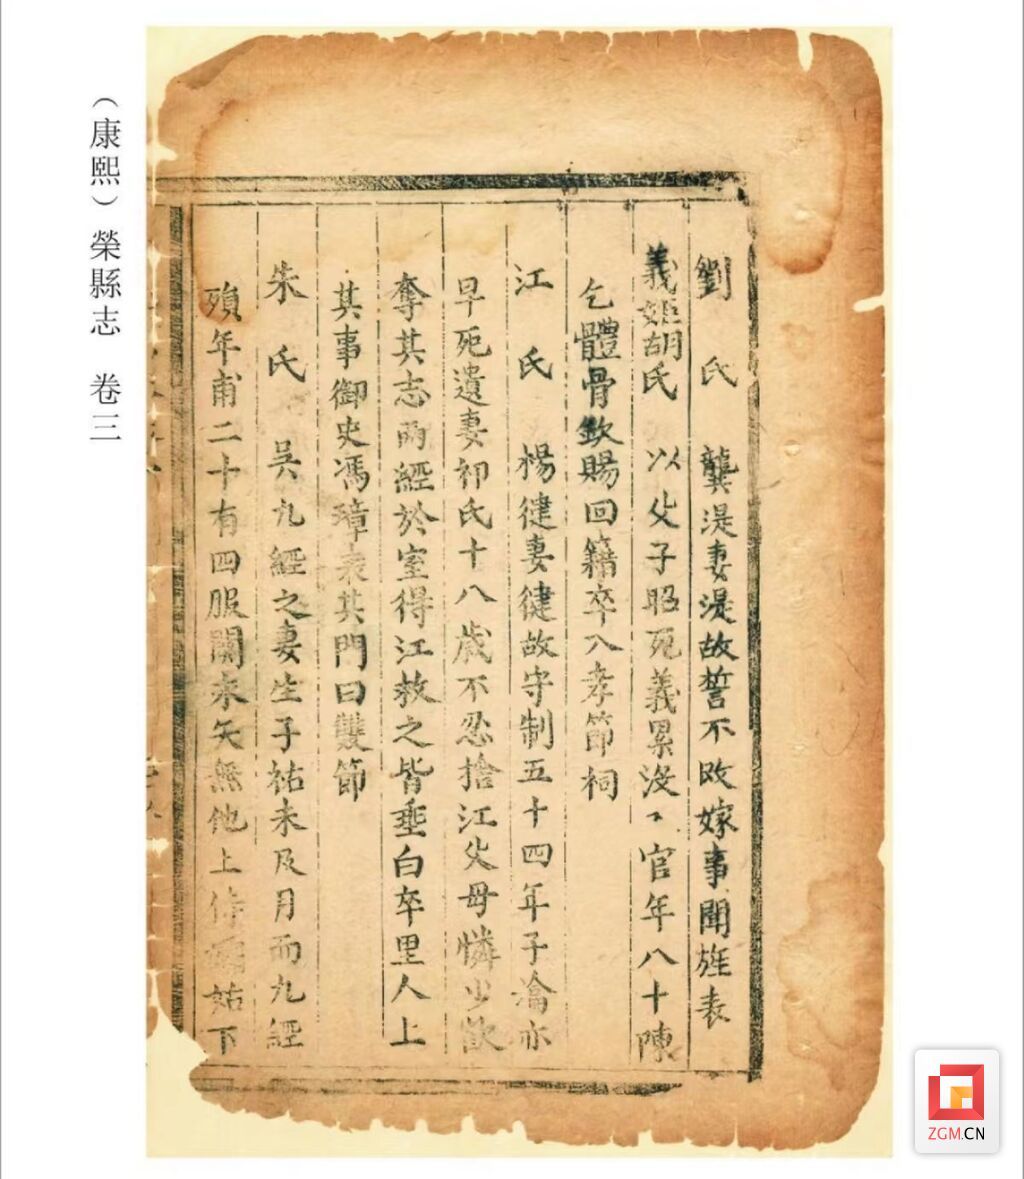 （康熙）榮縣志　卷三
劉　氏　龔湜妻湜故誓不改嫁事聞旌表
義姬胡氏　以父子昭死義累沒入官年八十陳
乞體骨欽賜回籍卒入孝節祠
江　氏　楊健妻健故守制五十四年子瀹亦
早死遺妻祁氏十八歲不忍捨江父母憐少欲
奪其志兩經於室得江救之皆垂白卒里人上
其事御史馮璋表其門曰雙節
朱　氏　吳九經之妻生子祐未及月而九經
殞年甫二十有四服闋柰矢無他上侍姑下
ZGM.CN